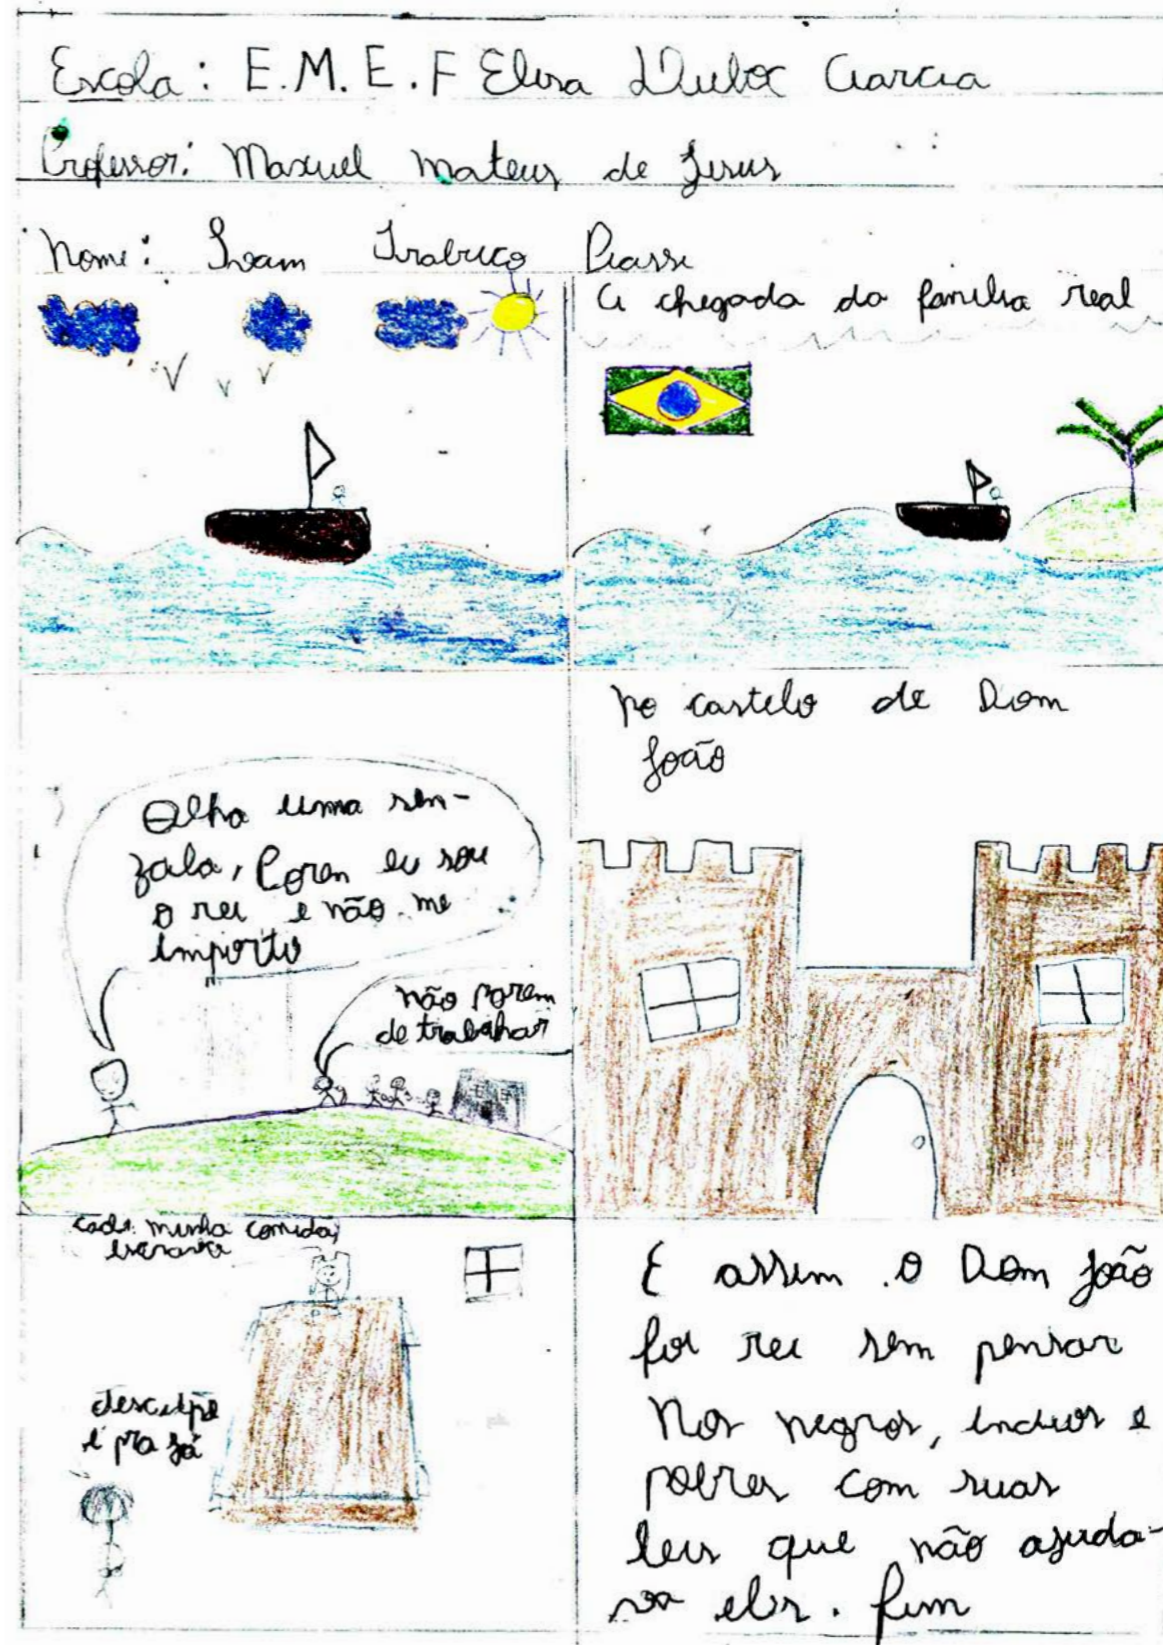 Escola: E.M.E.F Elisa Garcia
Professor: Maxuel Mateus de Jesus
Nome: Piassi
A chegada da família real
No castelo de Dom
João
Olha uma sen-
zala, Porem eu sou
o rei e não me
importo
não parem
de trabalhar
cade minha comida,
desculpe
é pra já
E assim o Dom João
foi rei sem pensar
Nos negros, indios e
pobres com suas
leis que não ajuda-
va eles. fim